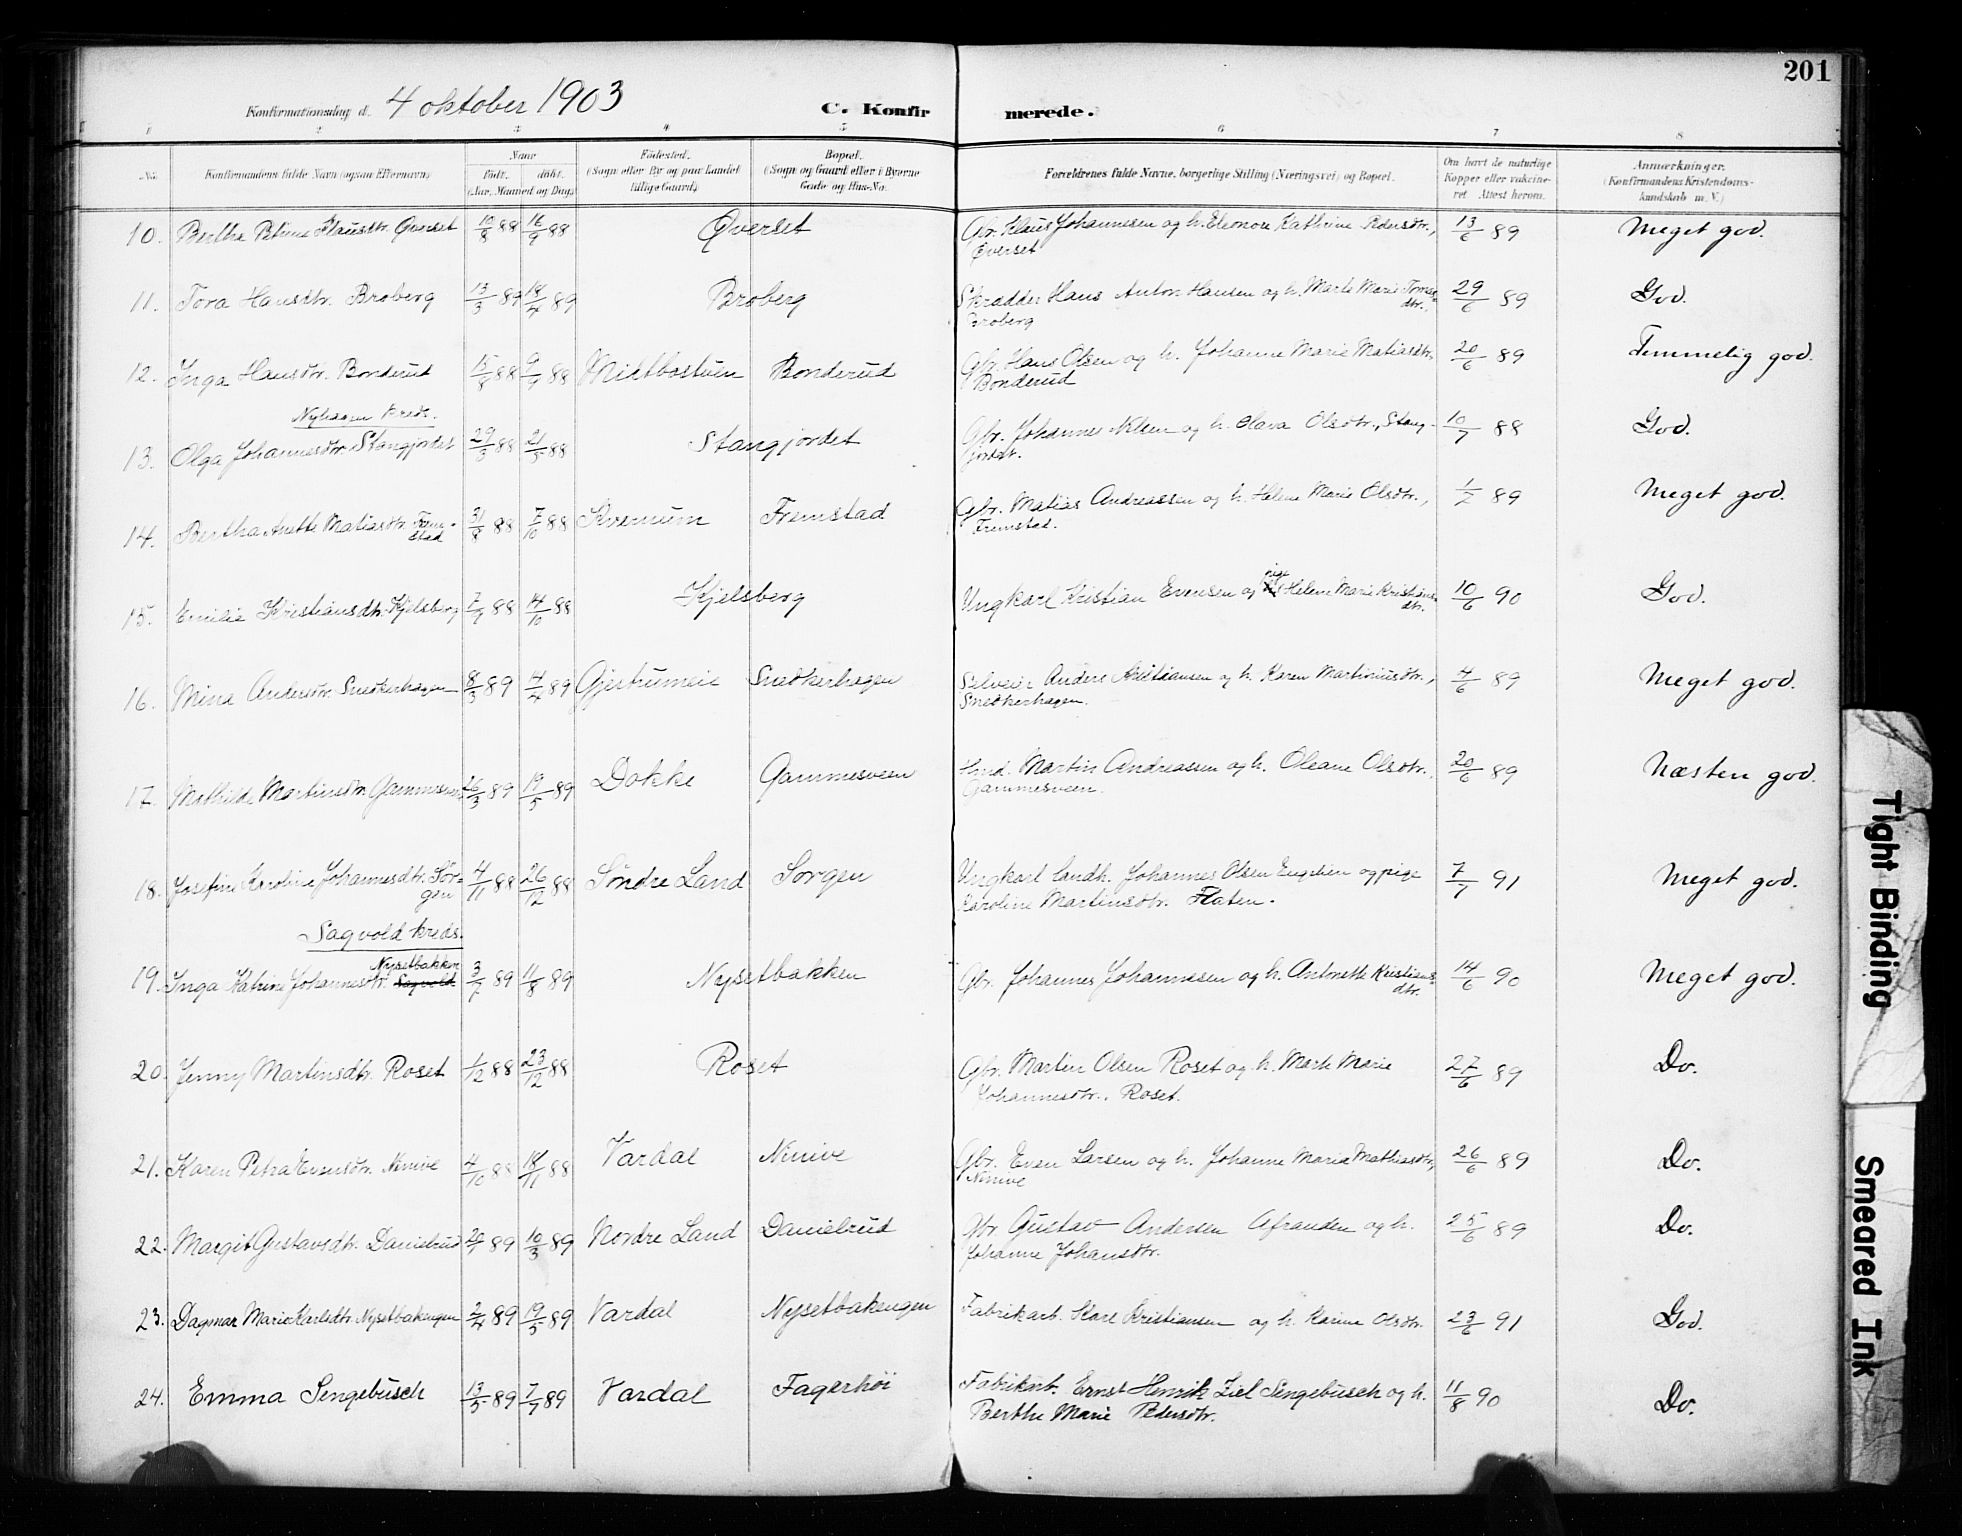 201
Konfirmationsdag d. 4 oktober 1903
C. Konfirmerede.
1 2 3 4 5 6 7 8
No.
Konfirmandens fulde Navn (ogsaa Efternavn).
Naar
født. døbt.
(Aar, Maaned og Dag).
Fødested.
(Sogn eller By og paa Landet tillige Gaard).
Bopæl.
(Sogn og Gaard eller i Byerne Gade og Hus-No.
Forældrenes fulde Navne, borgerlige Stilling (Næringsvei) og Bopæl.
Om havt de naturlige Kopper eller vaccineret. Attest herom.
Anmærkninger.
(Konfirmandens Kristendomskundskab m. V.)
10. Bertha Petrine Klausdtr. Øverset 10/8 88 16/9 88 Øverset Gbr. Klaus Johannesen og h. Eleonore Kathrine Pedersdtr., 13/6 89 Meget god.
Øverset
11. Tora Hansdtr. Broberg 13/3 89 18/4 89 Broberg Skrædder Hans Anton Hansen og h. Marte Marie Tomasdtr., 29/6 89 God.
Broberg
12. Inga Hansdtr. Bonderud 88 88 Midtbøstuen Bonderud Gbr. Hans Olsen og h. Johanne Marie Matiasdtr. 20/6 89 Temmelig god.
Bonderud
Nyhagen kreds.
13. Olga Johannesdtr. Stangjordet 29/3 88 21/5 88 Stangjordet Gbr. Johannes Nilsen og h. Olava Olsdtr., Stangjordet. 10/7 88 God.
14. Bertha Anette Matiasdtr. Fremstad 31/8 88 7/10 88 Kvernum Fremstad Gbr. Matias Andreassen og h. Helene Marie Olsdtr., 1/7 89 Meget god.
Fremstad.
15. Emilie Kristiansdtr. Kjelsberg 7/9 88 14/10 88 Kjelsberg Ungkarl Kristian Evensen og pige Helene Marie Kristiansdtr. 10/6 90 God.
16. Mina Andersdtr. Snedkerhagen 8/3 89 4/4 89 Gjestrumeie Snedkerhagen Selveier Anders Kristiansen og h. Karen Martinusdtr., 4/6 89 Meget god.
Snedkerhagen.
17. Mathilde Martinsdtr. Gammesveen 26/3 89 19/5 89 Dokke Gammesveen Smed. Martin Andreassen og h. Oleane Olsdtr., 20/6 89 Næsten god.
Gammesveen.
18. Josefine Karoline Johannesdtr. Sørgen 4/11 88 26/12 88 Søndre Land Sørgen Ungkarl landh. Johannes Olsen Engelien og pige 7/7 91 Meget god.
Karoline Martinsdtr. Flaten.
Sagvold kreds.
Nysetbakken
19. Inga Katrine Johannesdtr. Sagvold 3/7 89 11/8 89 Nysetbakken Gbr. Johannes Johannesen og h. Antonette Kristiansdtr. 14/6 90 Meget god.
20. Jenny Martinsdtr. Roset 1/12 88 23/12 88 Roset Gbr. Martin Olsen Roset og h. Marte Marie 27/6 89 Do.
Johannesdtr., Roset.
21. Karen Petra Evensdtr. Ninive 4/10 88 18/11 88 Vardal Ninive Gbr. Even Larsen og h. Johanne Maria Mathiasdtr., 26/6 89 Do.
Ninive
22. Margit Gustavsdtr. Danielrud 20/1 89 10/3 89 Nordre Land Danielrud Gbr Gustav Andersen Afranden og h. 25/6 89 Do.
Johanne Johansdtr.
23. Dagmar Marie Karlsdtr. Nysetbakengen 2/4 89 19/5 89 Vardal Nysetbakengen Fabrikarb. Karl Kristiansen og h. Karine Olsdtr. 23/6 91 God.
24. Emma Sengebusch 13/5 89 7/7 89 Vardal Fagerhøi Fabrikarb. Ernst Henrik Ziel Sengebusch og h. 11/8 90 Do.
Berthe Marie Pedersdtr.
Tight Binding
Smeared Ink